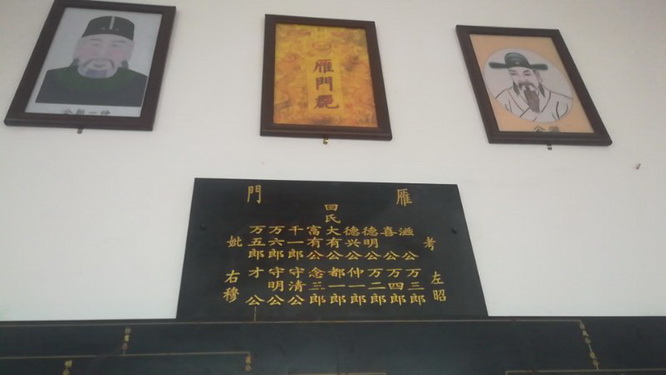 雁門
雁門
回氏
考
滋公
喜公
德明公
德兴公
大有公
富有公
千一郎
万六郎
万五郎
妣
左昭
万三郎
万四郎
万二郎
仲一郎
都一郎
念三郎
守清公
守明公
才公
右穆